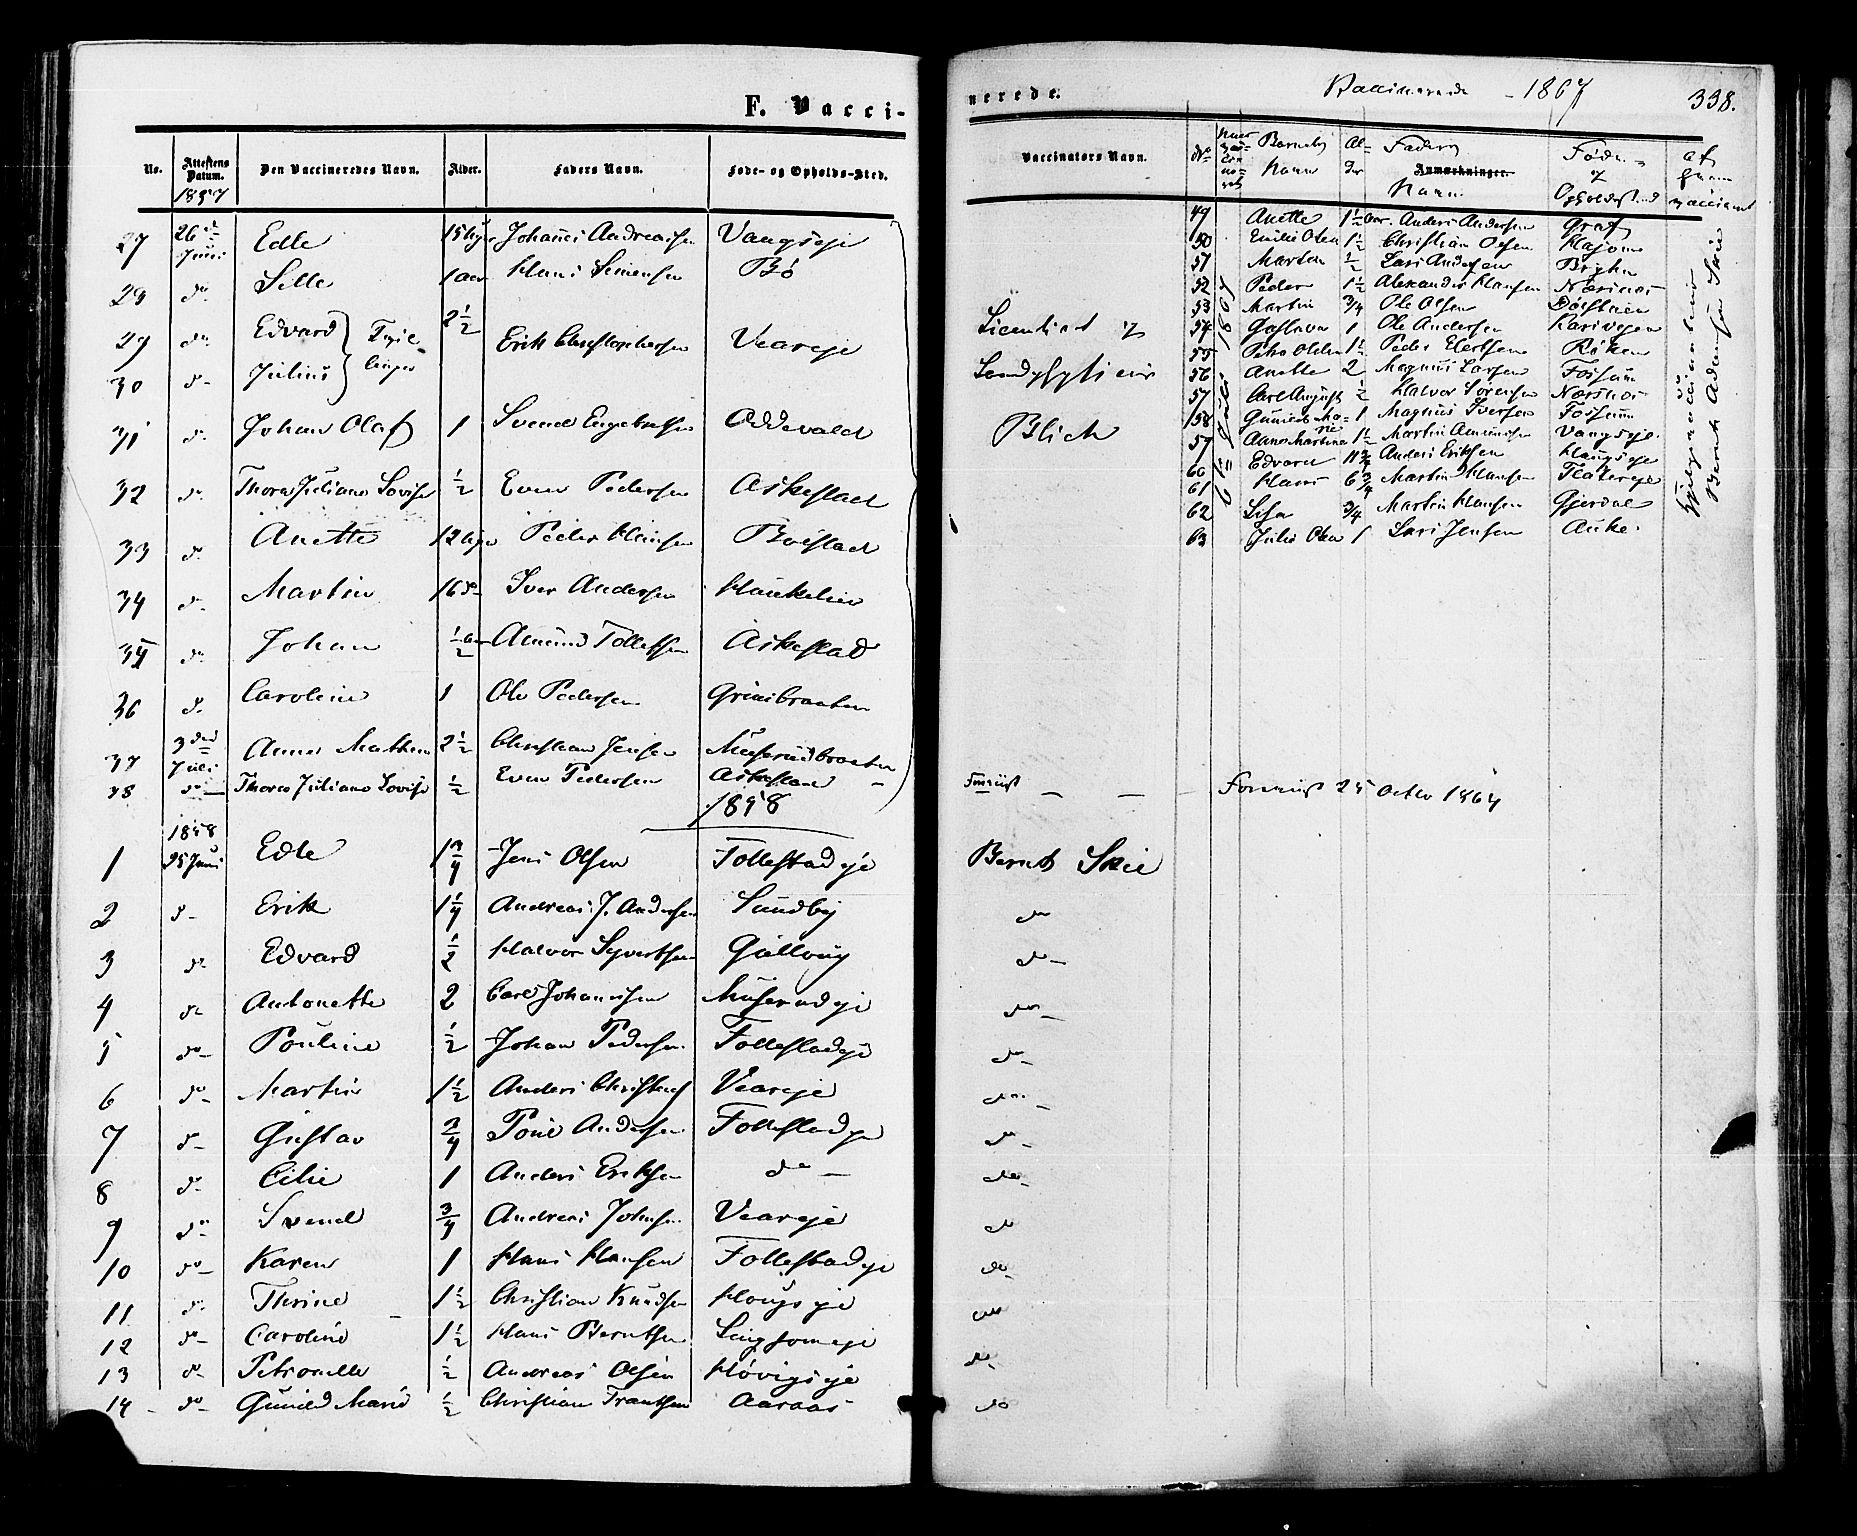 F. Vacci-
No. Attestens Datum. Den Vaccineredes Navn. Alder. Faders Navn. Føde- og Opholds-Sted.
1857
27 26de Juni Edle 15 Johannes Andreassen Vangseje
28 do Sille 1 aar Hans Simensen Bø
29 do Edvard 2 1/2 Erik Christophersen Veareje
30 do Julius
31 do Johan Olaf 1 Svend Engebretsen Addevald
32 do Thora Juliane Lovise 1/2 Even Pedersen Askestad
33 do Anette 12 Peder Hansen Bøstad
34 do Martin 16 do Iver Andersen Haukelien
35 do Johan 1/2 Amund Tollefsen Askestad
36 do Caroline 1 Ole Pedersen Grinibraaten
37 3die Juli Anne Mathea 2 1/2 Christian Jensen Muserudbraaten
38 do Thora Juliane Lovise 1/2 Even Pedersen Askestad
1858
1858
1 25 Juni Edle 1 3/4 Jens Olsen Follestadeje
2 do Erik 1 1/4 Andreas J. Andersen Sundby
3 do Edvard 1/2 Halvor Syvertsen Gullaug
4 do Antonette 2 Carl Johannesen Muserudeje
5 do Pauline 1/2 Johan Pedersen Follestadeje
6 do Martin 1 1/2 Anders Veareje
7 do Gustav 3/4 Poul Andersen Follestadeje
8 do Cilie 1 Anders Eriksen do
9 do Svend 3/4 Andreas Johnsen Veareje
10 do Karen 1 Hans Hansen Follestadeje
11 do Thrine 1 1/2 Christian Knudsen Haugseje
12 do Caroline 1 1/2 Hans Berntsen
13 do Petronelle 1/2 Andreas Olsen Høvigseje
14 do Gunild Marie 1/2 Christian Frantsen Aaraas
nerede. Vaccinerede 1867 338.
Vaccinators Navn. No Barnets Navn Alder Faders Navn Anmærkninger. Føde- og Opholdssted af hvem vaccineret
49 Anette 1 1/2 aar Anders Andersen Graf
50 Emilie Olea 1 1/2 Christian Olsen Hajum
51 Martin 1/2 Lars Andersen Bryhn
52 Peder 1 1/2 Alexander Hansen Næsnes
53 Martin 3/4 Ole Olsen
54 Gustava 1 Ole Andersen
55 1 1/2 Peder Elertsen Røken
56 Anette 2 Magnus Larsen Fossum
57 Carl August 1/2 Halvor Sørensen Næsnes
58 Gunild Marie 1 Magnus Iversen Fossum
59 Anne Martine 1 1/2 Martin Amundsen Vangseje
60 Edvard 11 3/4 Anders Eriksen Haugseje
61 Hans 6 3/4 Martin Hansen
62 Lisa 3/4 Martin Hansen Gjerdal
63 Julie Olea 1 Lars Jensen Auke
6te Juli 1867
Hjelpevaccinateur Bernt Adamsen Skie
Licentiat
Blich
Forevist Forevist 25 Octbr 1864
Bernt Skie
do
do
do
do
do
do
do
do
do
do
do
do
do